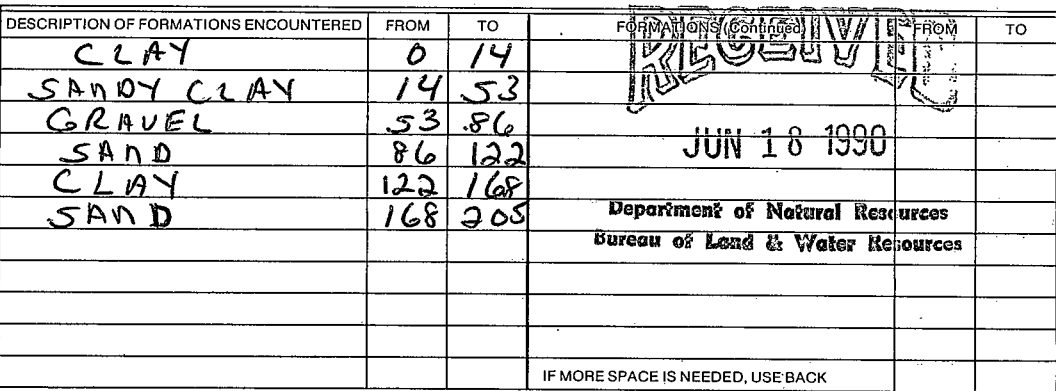 DESCRIPTION OF FORMATIONS ENCOUNTERED FROM TO FORMATIONS (Continued) FROM TO
CLAY 0 14
SANDY CLAY 14 53
GRAVEL 53 86
SAND 86 122
CLAY 122 168
SAND 168 205
RECEIVED
JUN 18 1990
Department of Natural Resources
Bureau of Land & Water Resources
IF MORE SPACE IS NEEDED, USE BACK